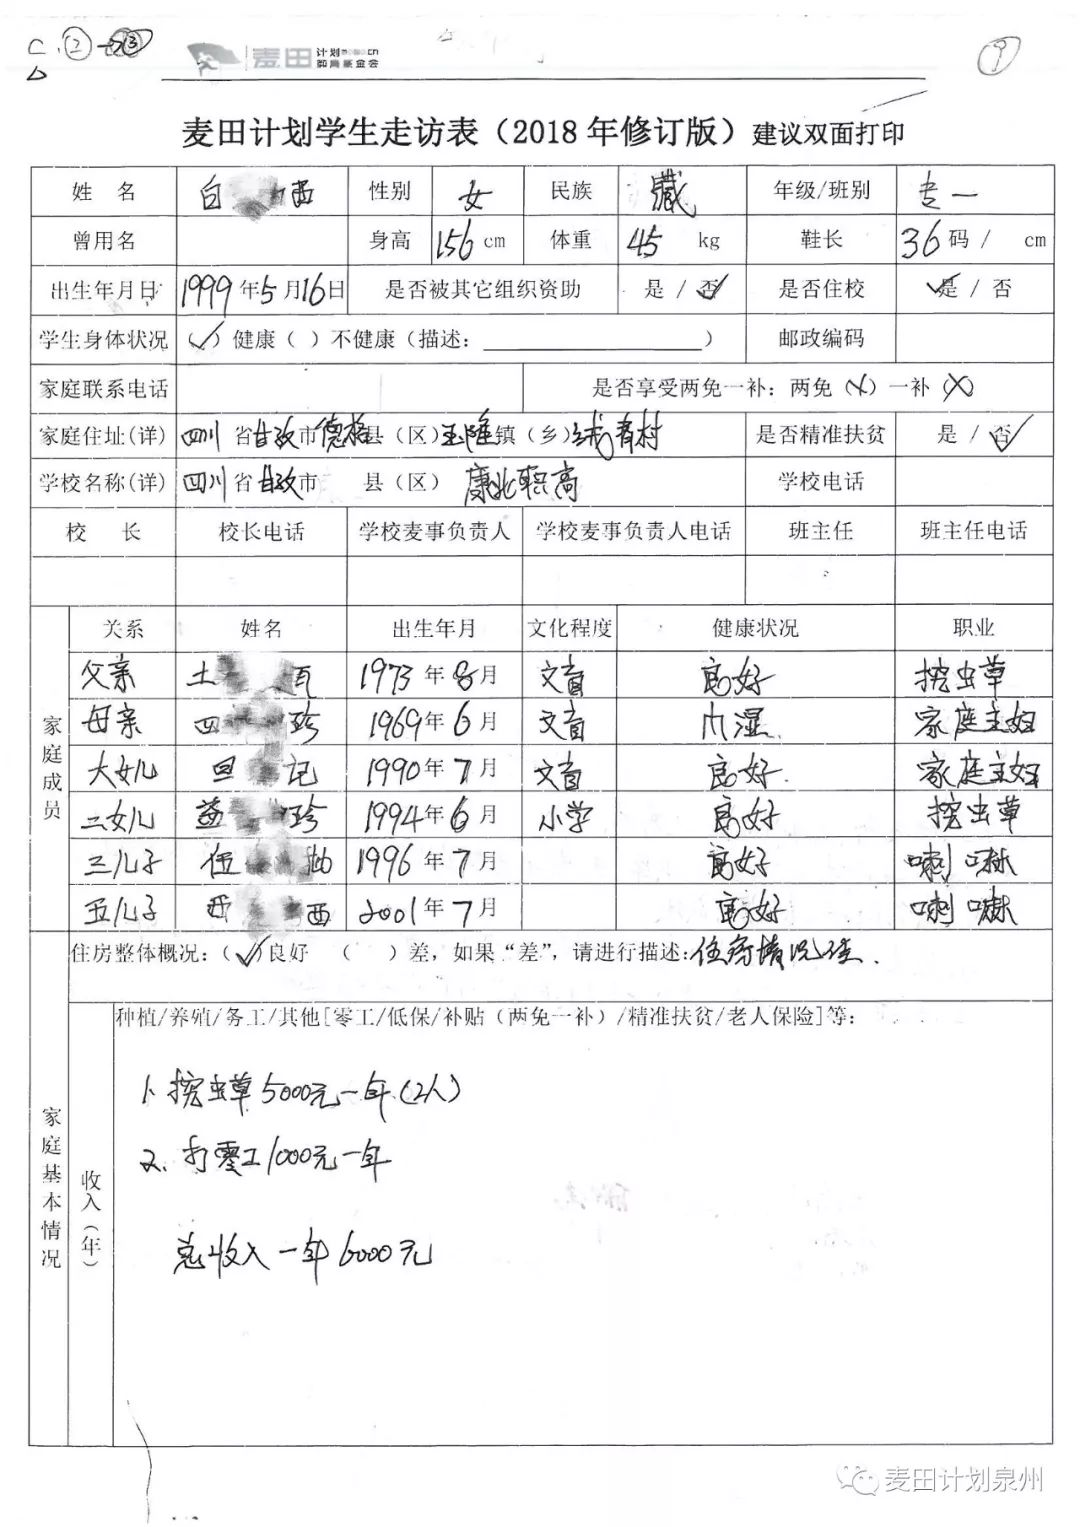 C.②→③
麦田 计划 MOWO.CN
教育基金会
⑨
麦田计划学生走访表（2018年修订版）建议双面打印
姓 名 白 西 性别 女 民族 藏 年级/班别 专一
曾用名 身高 156 cm 体重 45 kg 鞋长 36 码/ cm
出生年月日 1999年5月16日 是否被其它组织资助 是/否 是否住校 是/否
学生身体状况 （✓）健康（ ）不健康（描述：） 邮政编码
家庭联系电话 是否享受两免一补：两免（X）一补（X）
家庭住址(详) 四川省甘孜市德格县（区）玉隆镇（乡） 村 是否精准扶贫 是/否
学校名称(详) 四川省甘孜市 县（区） 康北职高 学校电话
校 长 校长电话 学校麦事负责人 学校麦事负责人电话 班主任 班主任电话
家庭成员
关系 姓名 出生年月 文化程度 健康状况 职业
父亲 土 瓦 1973年8月 文盲 良好 挖虫草
母亲 四 珍 1969年6月 文盲 风湿 家庭主妇
大女儿 旦 记 1990年7月 文盲 良好. 家庭主妇
二女儿 益 珍 1994年6月 小学 良好 挖虫草
三儿子 伍 1996年7月 良好 喇嘛
五儿子 西 2001年7月 良好 喇嘛
家庭基本情况
住房整体概况：（✓）良好 （ ）差，如果“差”，请进行描述：住房情况佳.
收入（年）
种植/养殖/务工/其他[零工/低保/补贴（两免一补）/精准扶贫/老人保险]等：
1、挖虫草5000元一年(2人)
2、打零工1000元一年
总收入一年6000元
麦田计划泉州